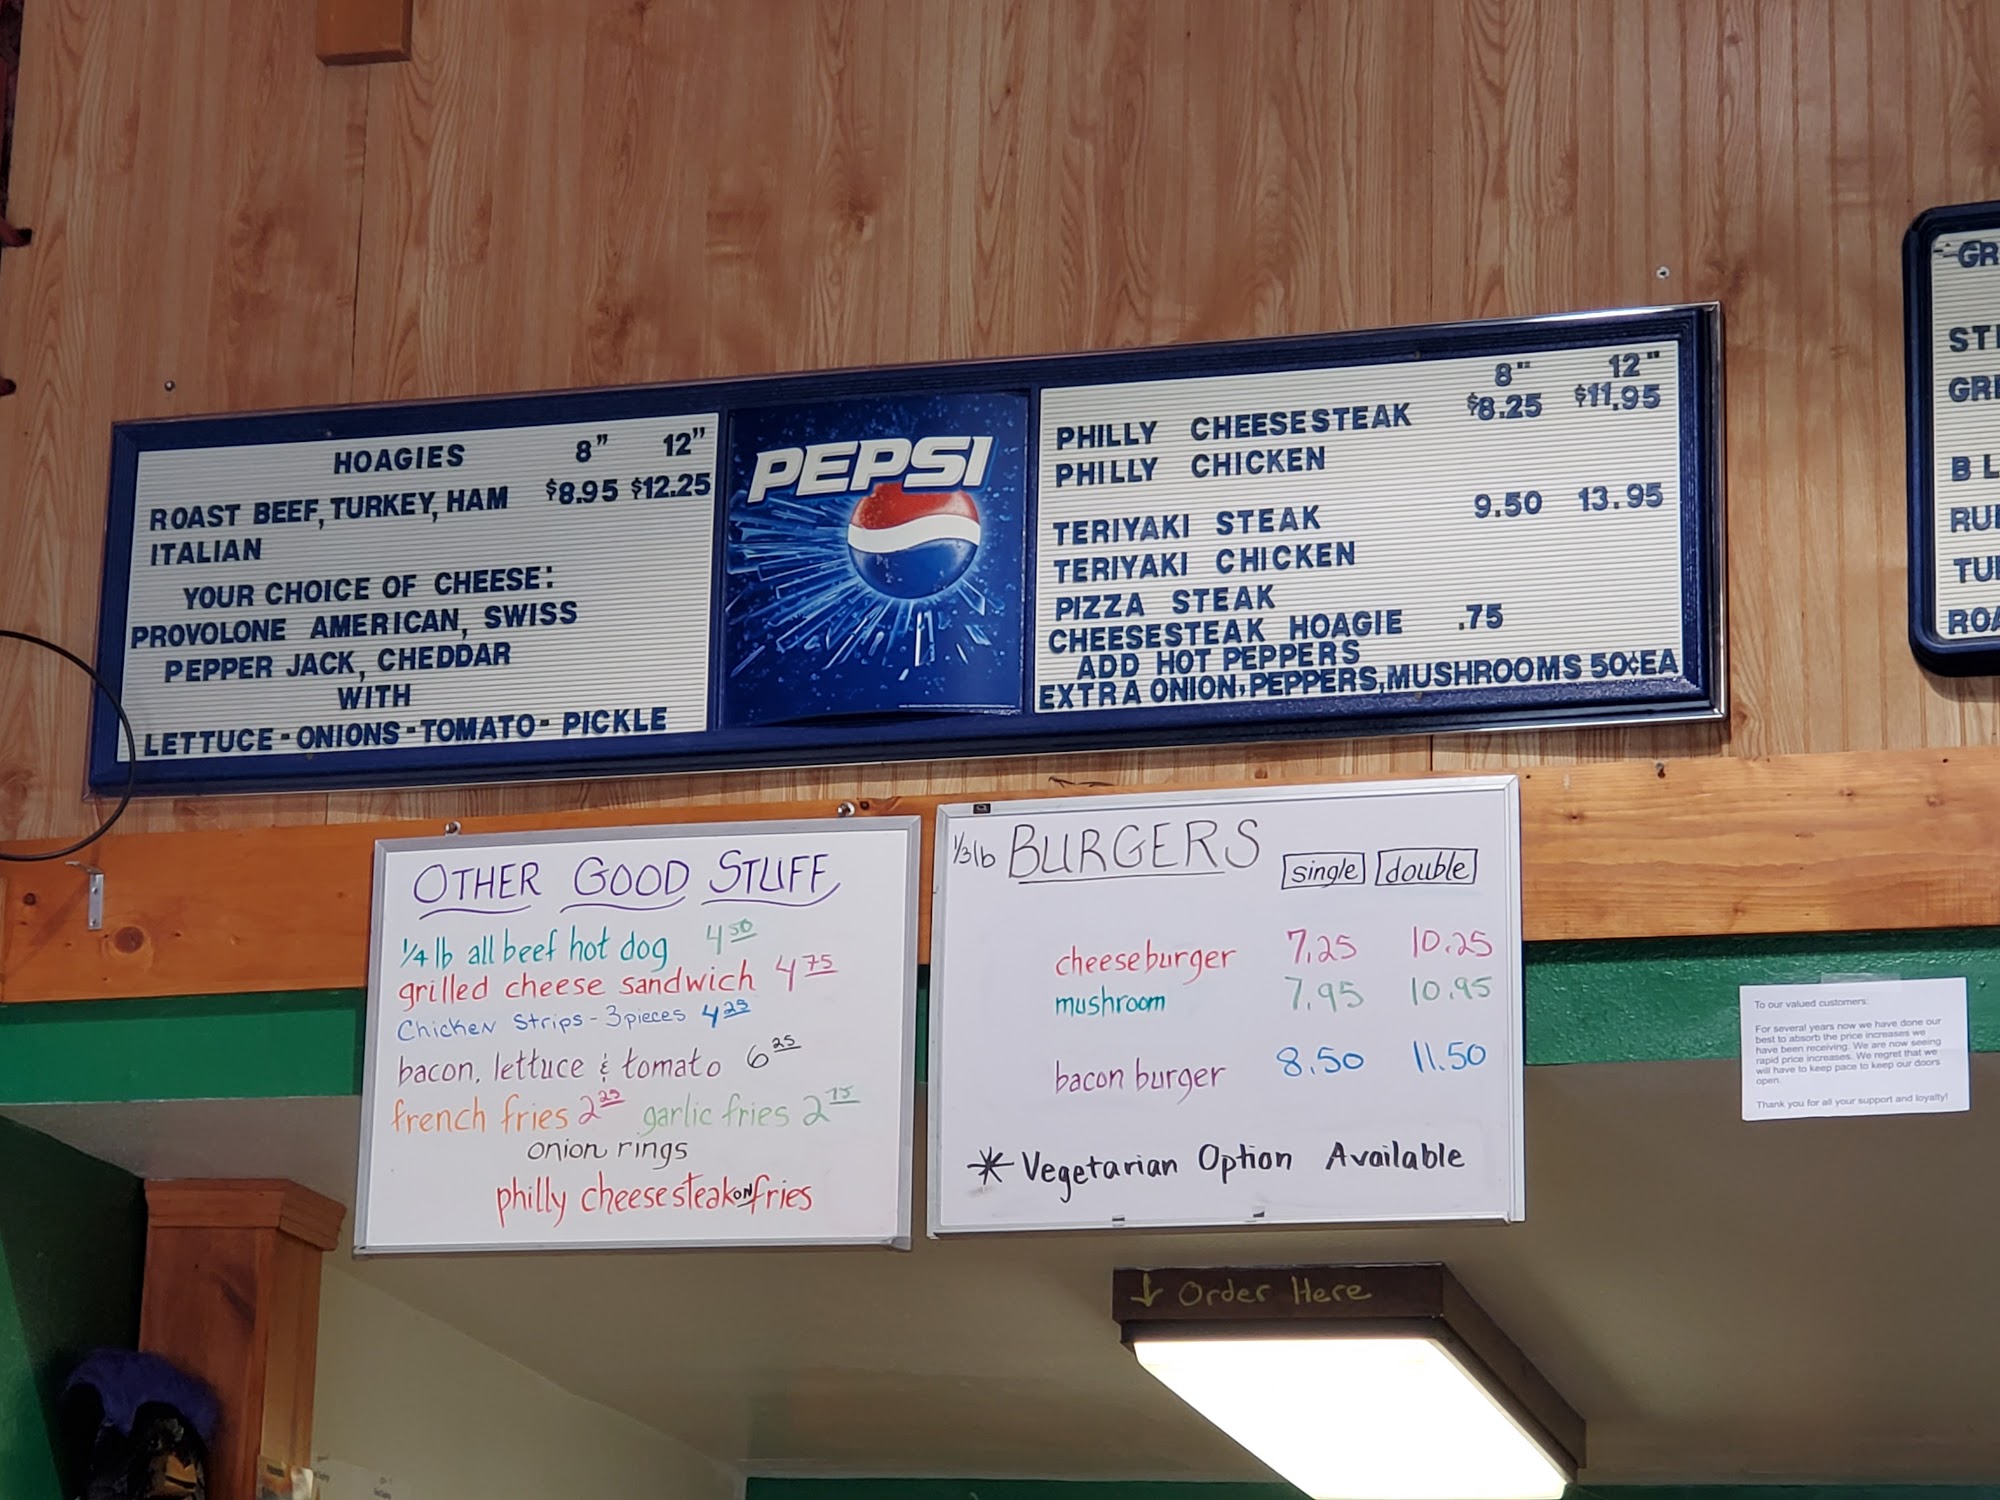 HOAGIES 8" 12"
ROAST BEEF, TURKEY, HAM $8.95 $12.25
ITALIAN
YOUR CHOICE OF CHEESE:
PROVOLONE AMERICAN, SWISS
PEPPER JACK, CHEDDAR
WITH
LETTUCE - ONIONS - TOMATO - PICKLE
PEPSI
8" 12"
PHILLY CHEESESTEAK $8.25 $11.95
PHILLY CHICKEN
TERIYAKI STEAK 9.50 13.95
TERIYAKI CHICKEN
PIZZA STEAK
CHEESESTEAK HOAGIE .75
ADD HOT PEPPERS
EXTRA ONION, PEPPERS, MUSHROOMS 50¢EA
GR
ST
GR
BL
RU
TU
ROA
OTHER GOOD STUFF
1/4 lb all beef hot dog 4 50
grilled cheese sandwich 4 75
Chicken Strips - 3 pieces 4 25
bacon, lettuce & tomato 6 25
french fries 2 25 garlic fries 2 75
onion rings
philly cheesesteak ON fries
1/3 lb BURGERS single double
cheeseburger 7.25 10.25
mushroom 7.95 10.95
bacon burger 8.50 11.50
* Vegetarian Option Available
To our valued customers:
For several years now we have done our
best to absorb the price increases we
have been receiving. We are now seeing
rapid price increases. We regret that we
will have to keep pace to keep our doors
open.
Thank you for all your support and loyalty!
↓ Order Here